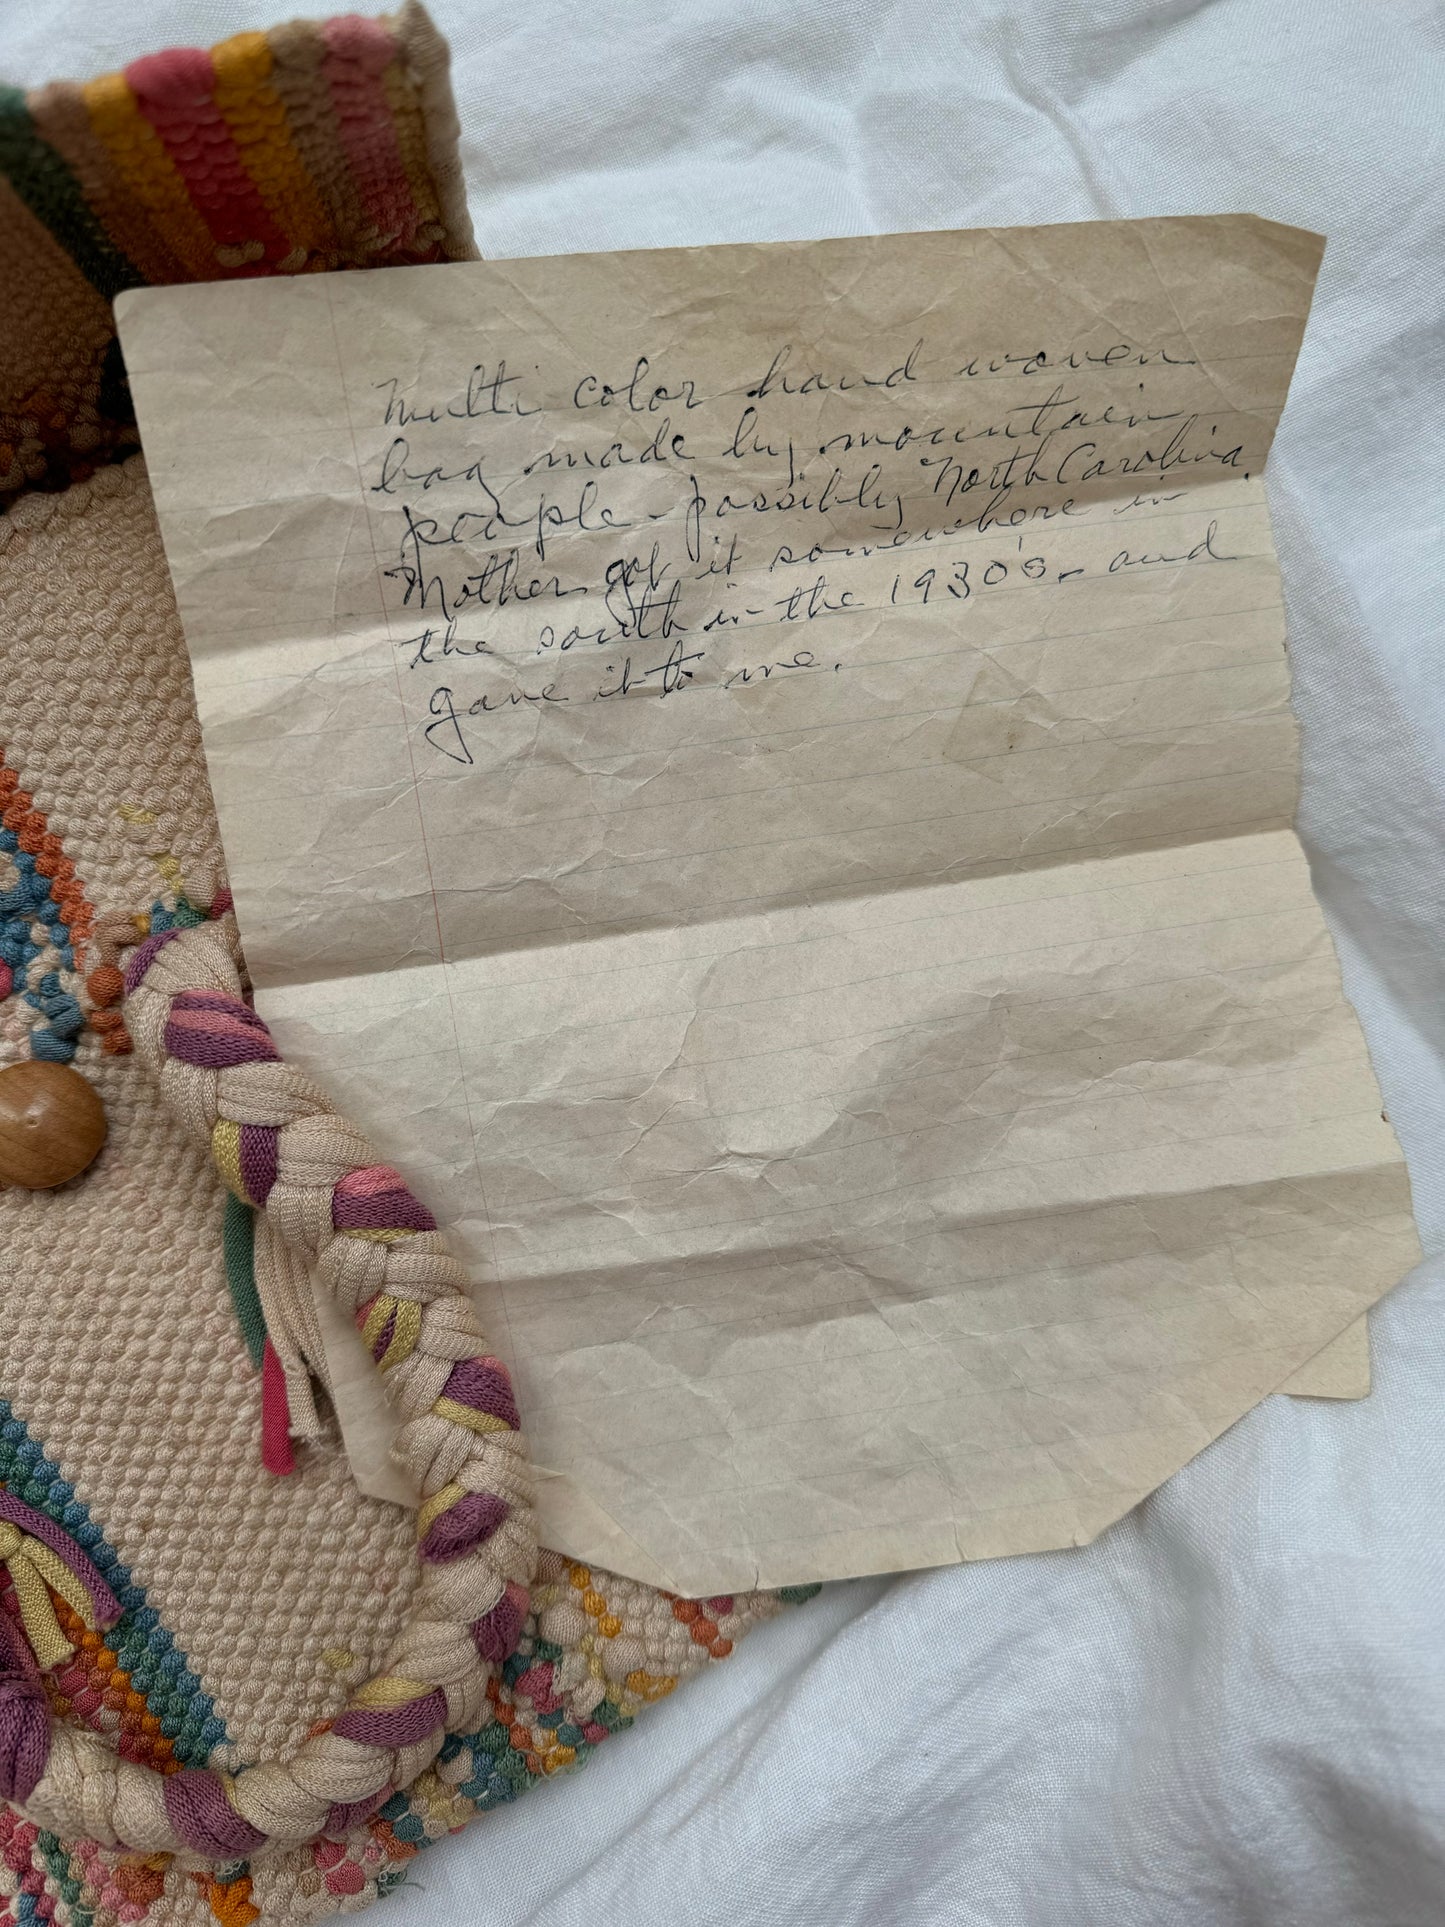 Multi color hand woven
bag made by mountain
people - possibly North Carolina.
Mother got it somewhere in
the south in the 1930's - and
gave it to me.